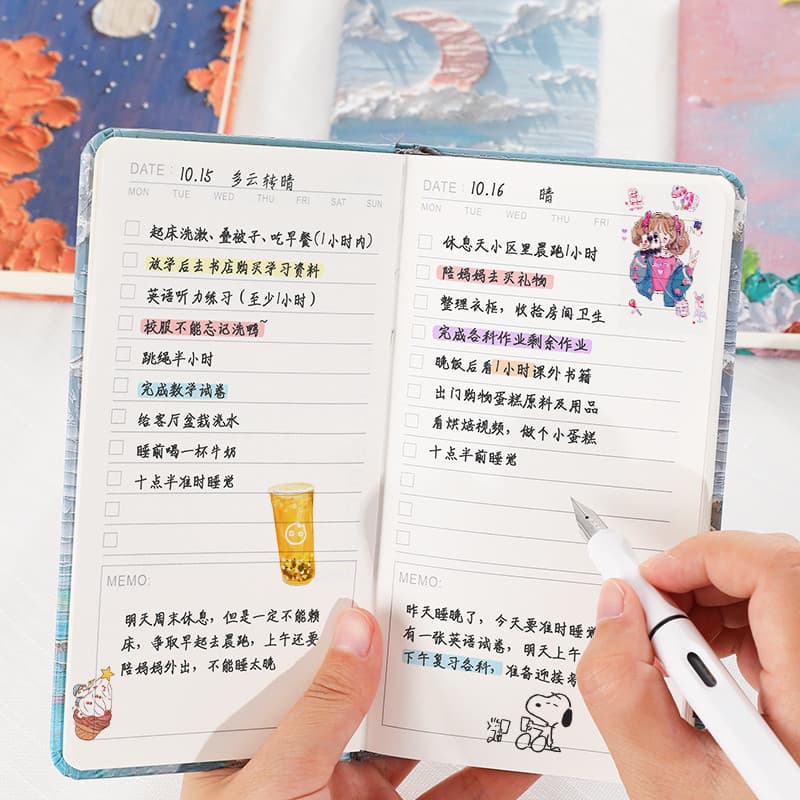 DATE: 10.15 多云转晴
MON TUE WED THU FRI SAT SUN
起床洗漱、叠被子、吃早餐(1小时内)
放学后去书店购买学习资料
英语听力练习(至少1小时)
校服不能忘记洗鸭~
跳绳半小时
完成数学试卷
给客厅盆栽浇水
睡前喝一杯牛奶
十点半准时睡觉
MEMO:
明天周末休息,但是一定不能赖
床,争取早起去晨跑,上午还要
陪妈妈外出,不能睡太晚
DATE: 10.16 晴
MON TUE WED THU FRI
休息天小区里晨跑1小时
陪妈妈去买礼物
整理衣柜,收拾房间卫生
完成各科作业剩余作业
晚饭后看1小时课外书籍
出门购物蛋糕原料及用品
看烘焙视频,做个小蛋糕
十点半前睡觉
MEMO:
昨天睡晚了,今天要准时睡觉
有一张英语试卷,明天上午
下午复习各科,准备迎接考